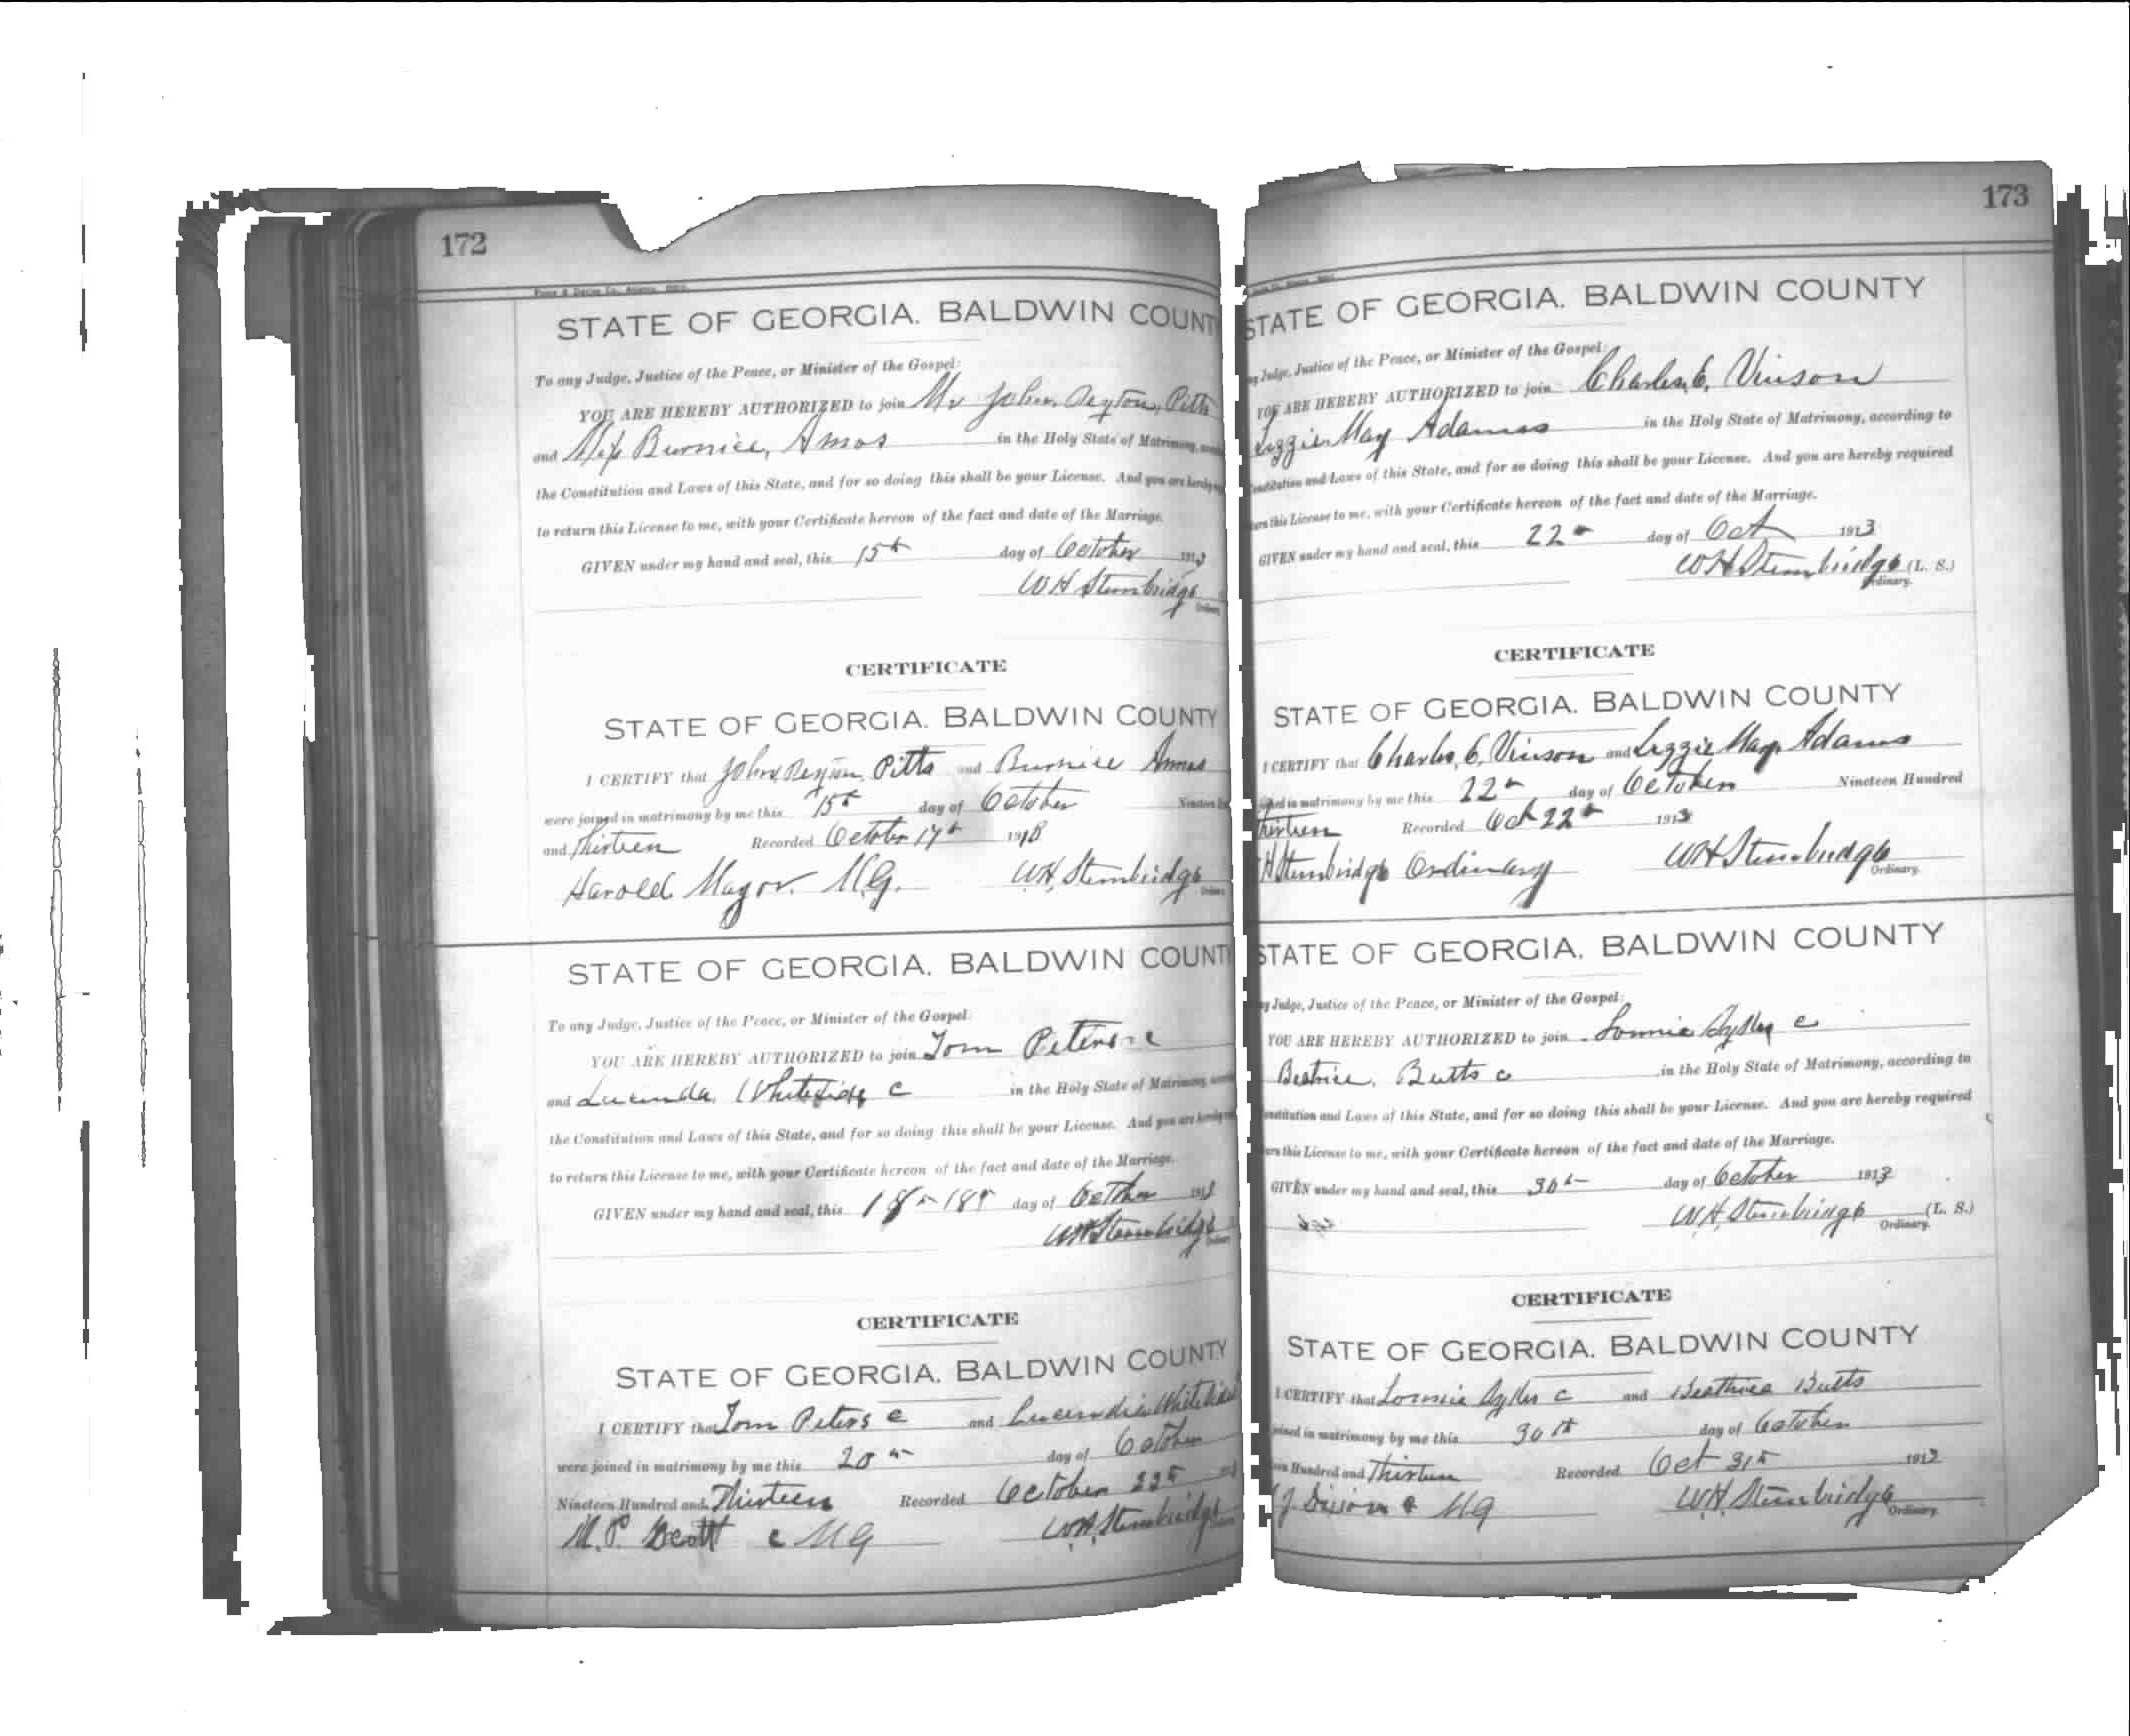 172
STATE OF GEORGIA. BALDWIN COUNT
To any Judge, Justice of the Peace, or Minister of the Gospel:
YOU ARE HEREBY AUTHORIZED to join Mr John, Peyton, Pitts
and Miss Burnice, Amos in the Holy State of Matrimony,
the Constitution and Laws of this State, and for so doing this shall be your License. And you are hereby
to return this License to me, with your Certificate hereon of the fact and date of the Marriage.
GIVEN under my hand and seal, this 15th day of October 1913
W H Stembridge
Ordinary
CERTIFICATE
STATE OF GEORGIA. BALDWIN COUNTY
I CERTIFY that John Peyton, Pitts and Burnice Amos
were joined in matrimony by me this 15th day of October Nineteen
and Thirteen Recorded October 17th 191
Harold Mayor. M.G. W.H. Stembridge
STATE OF GEORGIA. BALDWIN COUNT
To any Judge, Justice of the Peace, or Minister of the Gospel.
YOU ARE HEREBY AUTHORIZED to join Tom Peters c
and Lucinda, Whiteside c in the Holy State of Matrimony,
the Constitution and Laws of this State, and for so doing this shall be your License. And you are hereby
to return this License to me, with your Certificate hereon of the fact and date of the Marriage.
GIVEN under my hand and seal, this 18th 18th day of October 191
WH Stembridge
CERTIFICATE
STATE OF GEORGIA. BALDWIN COUNTY
I CERTIFY that Tom Peters c and
were joined in matrimony by me this 20th day of October
Nineteen Hundred and Thirteen Recorded October 22
M. P. Scott c MG W.H. Stembridge
173
STATE OF GEORGIA. BALDWIN COUNTY
Judge, Justice of the Peace, or Minister of the Gospel:
YOU ARE HEREBY AUTHORIZED to join Charles, C, Vinson
Lizzie May Adams in the Holy State of Matrimony, according to
Constitution and Laws of this State, and for so doing this shall be your License. And you are hereby required
this License to me, with your Certificate hereon of the fact and date of the Marriage.
GIVEN under my hand and seal, this 22 day of Oct 1913
W H Stembridge (L. S.)
Ordinary.
CERTIFICATE
STATE OF GEORGIA. BALDWIN COUNTY
I CERTIFY that Charles, C, Vinson and Lizzie May Adams
joined in matrimony by me this 22 day of October Nineteen Hundred
Thirteen Recorded Oct 22 1913
H Stembridge Ordinary W H Stembridge
Ordinary.
STATE OF GEORGIA. BALDWIN COUNTY
Judge, Justice of the Peace, or Minister of the Gospel:
YOU ARE HEREBY AUTHORIZED to join Lonnie c
Beatrice, Butts c in the Holy State of Matrimony, according to
Constitution and Laws of this State, and for so doing this shall be your License. And you are hereby required
this License to me, with your Certificate hereon of the fact and date of the Marriage.
GIVEN under my hand and seal, this 30th day of October 1913
W.H. Stembridge (L. S.)
Ordinary.
CERTIFICATE
STATE OF GEORGIA. BALDWIN COUNTY
I CERTIFY that Lonnie c and Butts
joined in matrimony by me this 30th day of October
Hundred and Thirteen Recorded Oct 31st 1913
MG W.H. Stembridge
Ordinary.